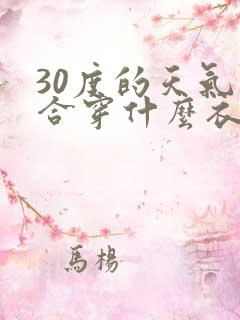 30度的天氣
合穿什麼衣
馬楊